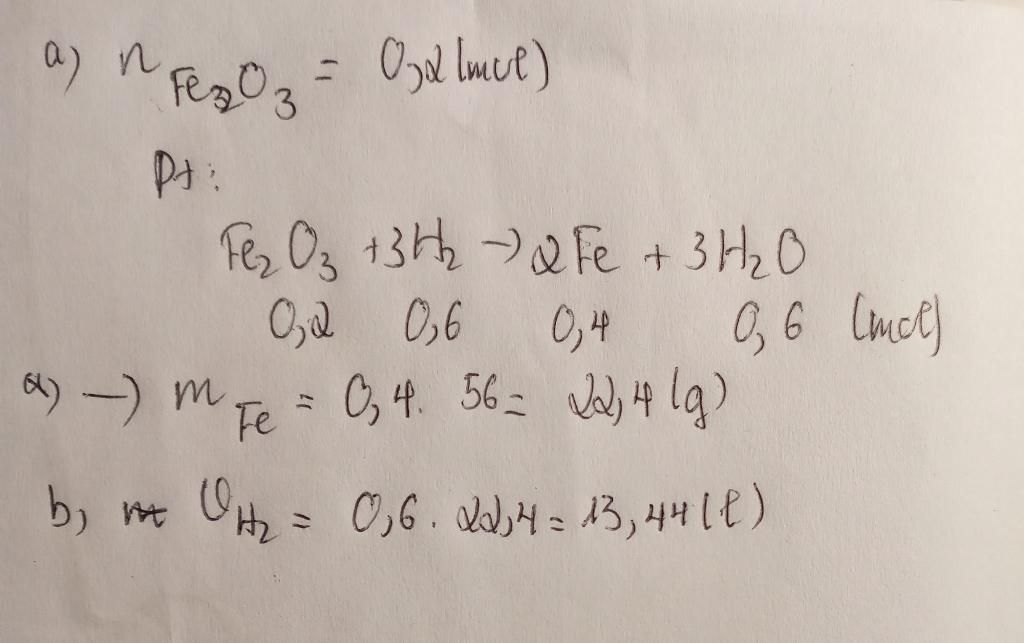 a) n Fe₂O₃ = 0,2 (mol)
Pt:
Fe₂O₃ + 3H₂ → 2Fe + 3H₂O
0,2 0,6 0,4 0,6 (mol)
a) → m Fe = 0,4. 56 = 22,4 (g)
b, V H₂ = 0,6. 22,4 = 13,44 (l)